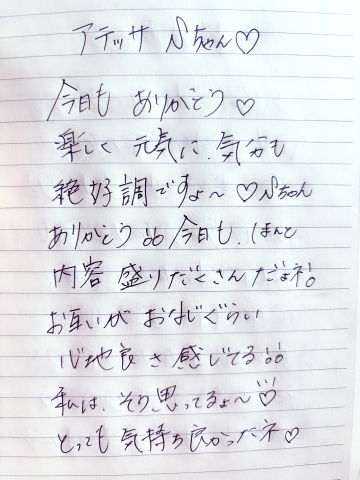 アテッサ Nちゃん♡
今日も ありがとう♡
楽しく 元気に、気分も
絶好調ですょ〜♡Nちゃん
ありがとう!! 今日も、ほんと
内容 盛りだくさんだょネ!
お互いが おなじぐらい
心地良さ感じてる!!
私は、そう思ってるょ〜♡
とっても 気持ち良かったネ♡